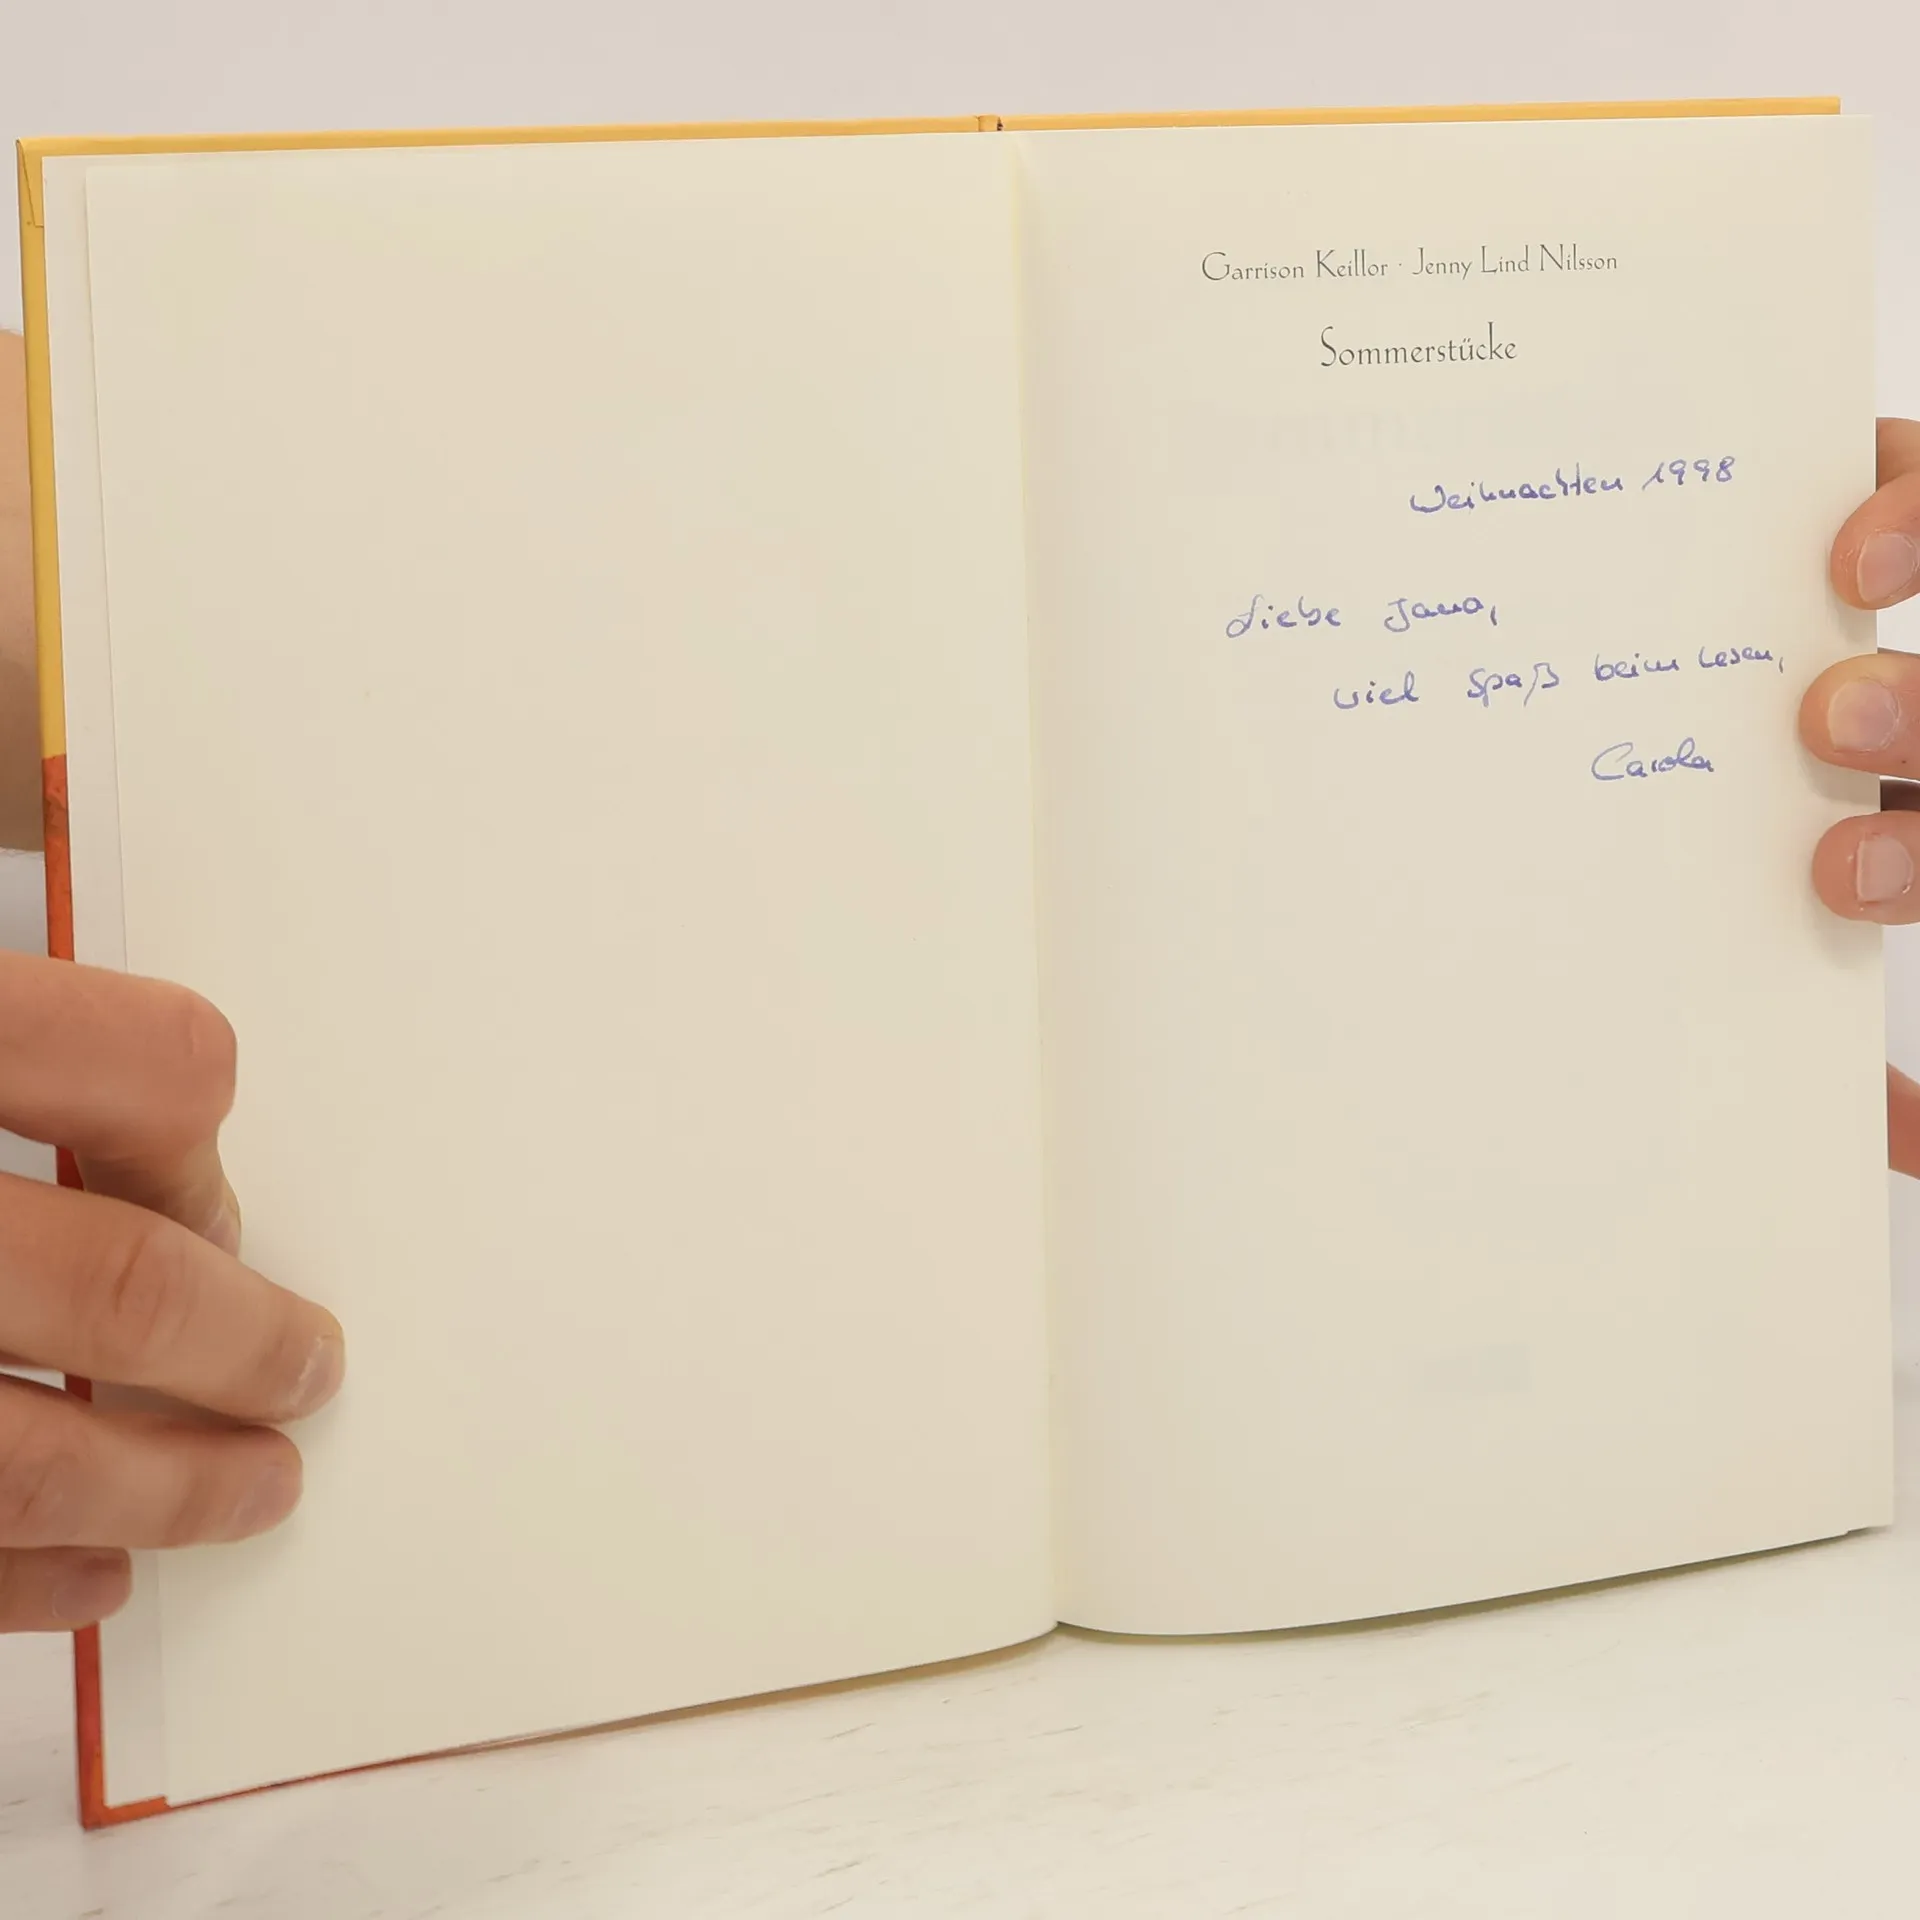 Garrison Keillor · Jenny Lind Nilsson
Sommerstücke
Weihnachten 1998
Liebe Jana,
viel Spaß beim Lesen,
Carola